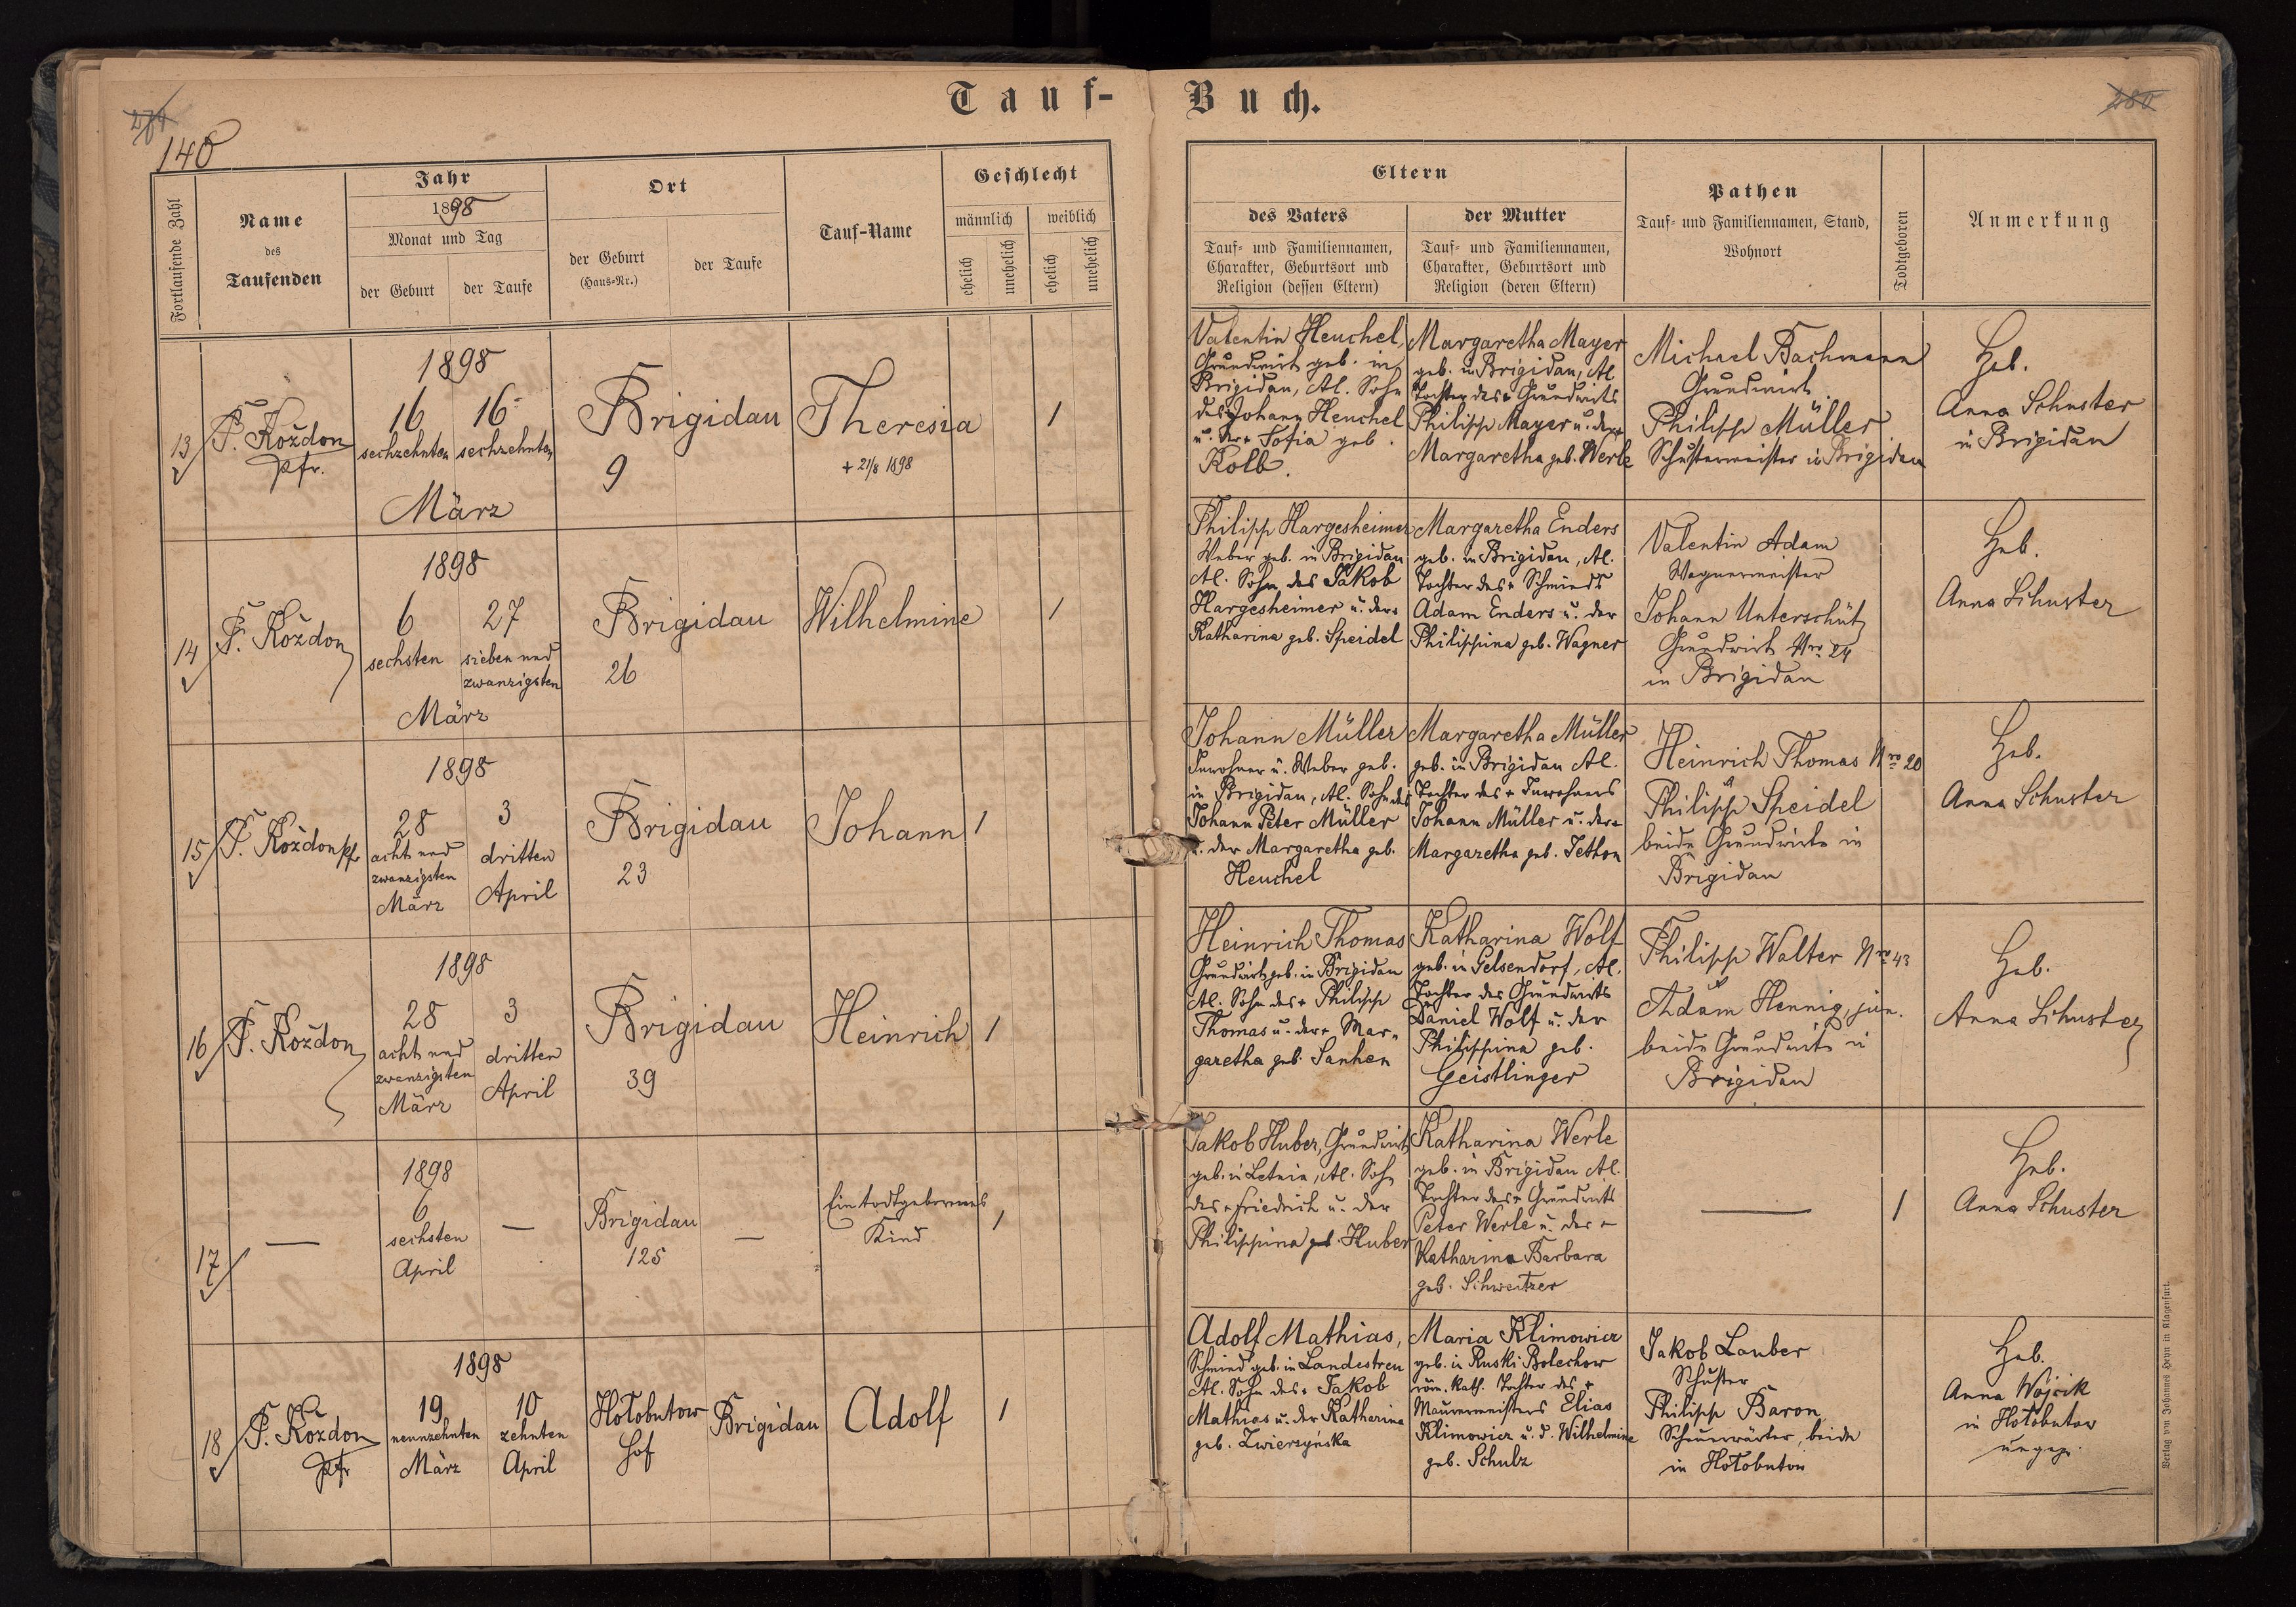 Tauf-Buch.
140
280
Fortlaufende Zahl
Name
des
Taufenden
Jahr
1898
Monat und Tag
der Geburt
der Taufe
Ort
der Geburt
(Haus-Nr.)
der Taufe
Tauf-Name
Geschlecht
männlich
weiblich
ehelich
unehelich
ehelich
unehelich
Eltern
des Vaters
Tauf- und Familiennamen,
Charakter, Geburtsort und
Religion (dessen Eltern)
der Mutter
Tauf- und Familiennamen,
Charakter, Geburtsort und
Religion (deren Eltern)
Pathen
Tauf- und Familiennamen, Stand,
Wohnort
Todtgeboren
Anmerkung
13
P. Koždon
Pfr.
1898
16 16
sechzehnten sechzehnten
März
Brigidau
9
Theresia
+ 21/8 1898
1
Valentin Heuchel,
Grundwirt geb. in
Brigidau, Al. Sohn
des Johann Heuchel
u. der + Sofia geb.
Kolb.
Margaretha Mayer
geb. in Brigidau, Al
Tochter des + Grundwirts
Philipp Mayer u. der +
Margaretha geb. Werle
Michael Bachmann
Grundwirt
Philipp Müller
Schustermeister in Brigidau
Heb.
Anna Schuster
in Brigidau
14
P. Koždon
1898
6 27
sechsten sieben und
zwanzigsten
März
Brigidau
26
Wilhelmine
1
Philipp Hargesheimer
Weber geb. in Brigidau
Al. Sohn des Jakob
Hargesheimer u. der +
Katharina geb. Speidel
Margaretha Enders
geb. in Brigidau, Al.
Tochter des + Schmieds
Adam Enders u. der
Philippina geb. Wagner
Valentin Adam
Wagnermeister
Johann Unterschütz
Grundwirt Nro 24
in Brigidau
Heb.
Anna Schuster
15
P. Koždon Pfr
1898
28 3
acht und dritten
zwanzigsten
März April
Brigidau
23
Johann
1
Johann Müller
Inwohner u. Weber geb.
in Brigidau, Al. Sohn des
Johann Peter Müller
u. der Margaretha geb.
Heuchel
Margaretha Müller
geb. in Brigidau Al.
Tochter des + Inwohners
Johann Müller u. der +
Margaretha geb. Jethon
Heinrich Thomas Nro 20
Philipp Speidel
beide Grundwirte in
Brigidau
Heb.
Anna Schuster
16
P. Koždon
1898
28 3
acht und dritten
zwanzigsten
März April
Brigidau
39
Heinrich
1
Heinrich Thomas
Grundwirt geb. in Brigidau
Al. Sohn des + Philipp
Thomas u. der + Mar-
garetha geb. Sanhen
Katharina Wolf
geb. in Gelsendorf, Al.
Tochter des Grundwirts
Daniel Wolf u. der
Philippina geb.
Geistlinger
Philipp Walter Nro 43
Adam Hennig, jun.
beide Grundwirte in
Brigidau
Heb.
Anna Schuster
17
—
1898
6
sechsten
April
—
Brigidau
125
—
Ein todtgeborenes
Kind
1
Jakob Huber, Grundwirt
geb. in Letnia, Al. Sohn
des + Friedrich u. der
Philippina geb. Huber
Katharina Werle
geb. in Brigidau Al.
Tochter des + Grundwirts
Peter Werle u. der +
Katharina Barbara
geb. Schweitzer
—
1
Heb.
Anna Schuster
18
P. Koždon
Pfr
1898
19 10
neunzehnten zehnten
März April
Hołobutow
Hof
Brigidau
Adolf
1
Adolf Mathias,
Schmied geb. in Landestreu
Al. Sohn des + Jakob
Mathias u. der Katharina
geb. Zwierzyńska
Maria Klimowicz
geb. in Ruski Bolechow
röm. kath. Tochter des +
Maurermeisters Elias
Klimowicz u. d. Wilhelmine
geb. Schulz
Jakob Lauber
Schuster
Philipp Baron
Scheuerwärter, beide
in Hołobutów
Heb.
Anna Wojcik
in Hołobutow
ungepr.
Verlag von Johannes Heyn in Klagenfurt.